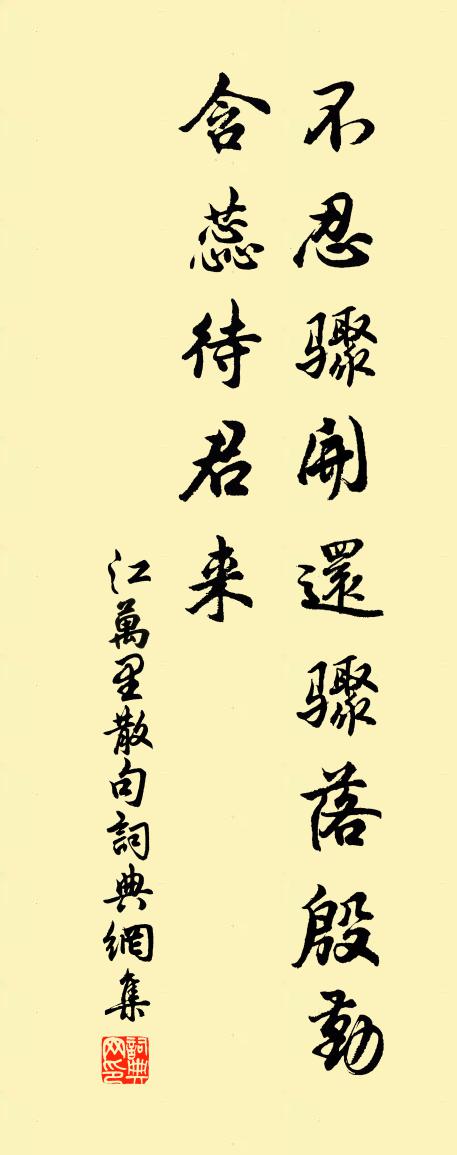 不忍驟開還驟落殷勤
含蕊待君来
江萬里散句詞典網集
詞典网印